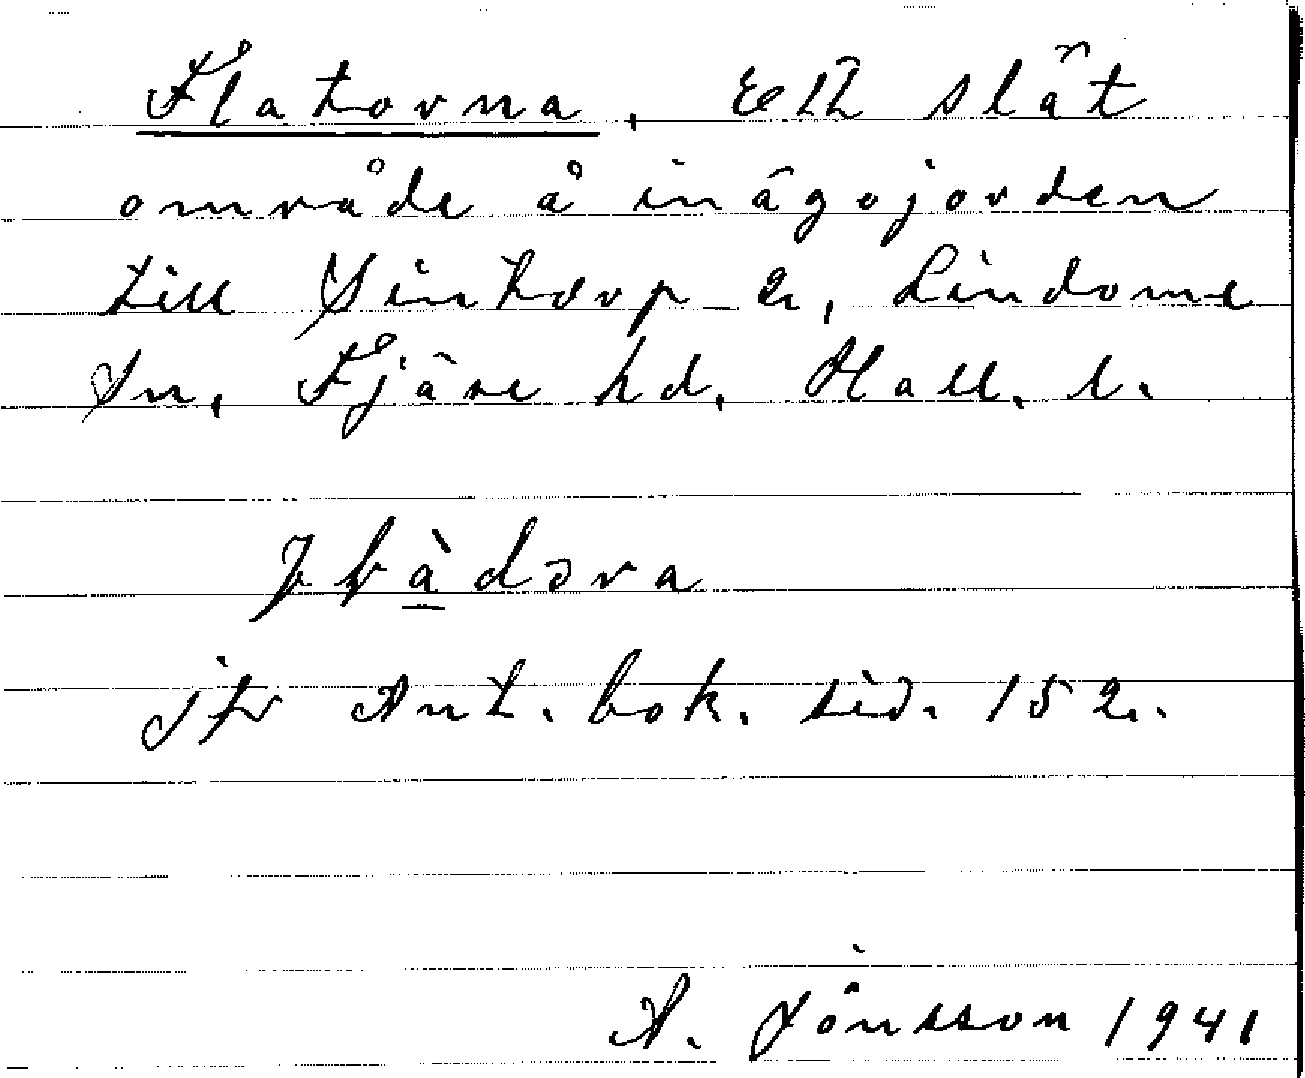 Flatorna, Ett slät
område å inägojorden
till Sintorp 2, Lindome
Sn, Fjäre hd, Hall. l.
jfr Ant. bok. sid. 152.
A. Jönsson 1941